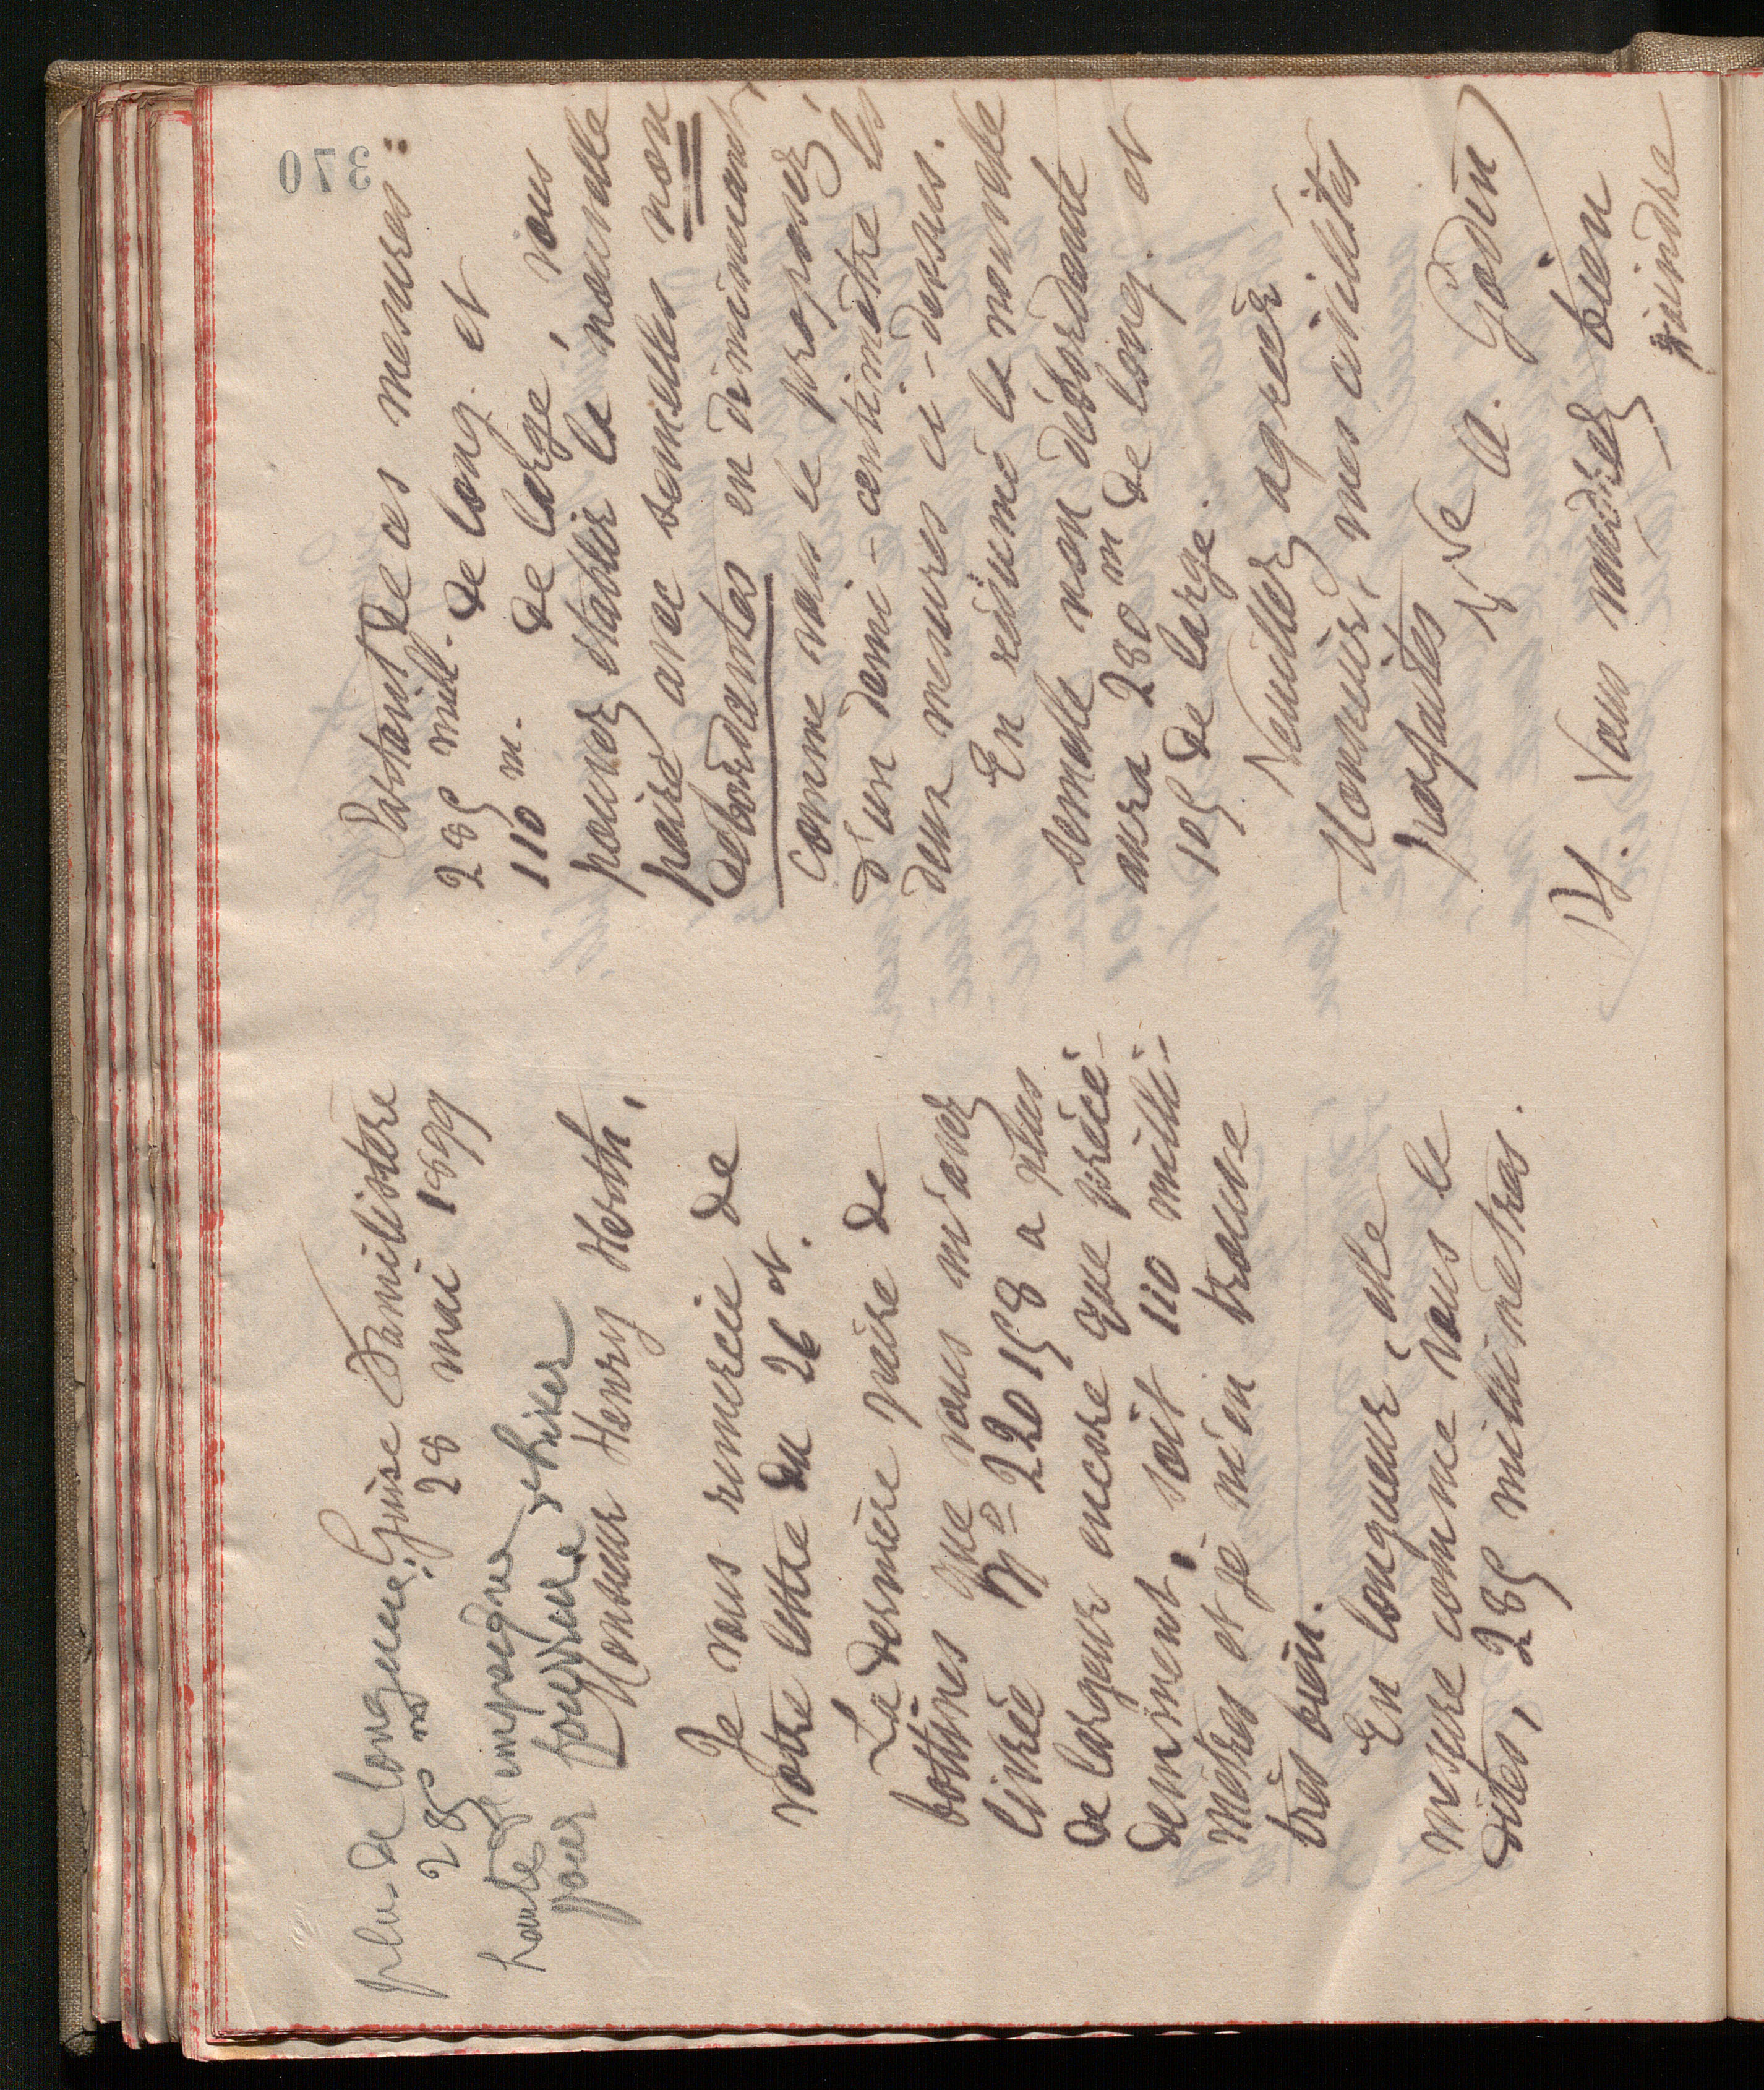 370
plus de longueur :
285 m
haute empeigne
pour poitrine
Guise Familistère
28 mai 1899
Monsieur Henry Herth,
Je vous remercie de
votre lettre du 26 ct.
La dernière paire de
bottines que vous m'avez
livrée No 22018 a plus
de largeur encore que précé-
demment, soit 110 milli-
mètres et je m'en trouve
très bien.
En longueur, elle
mesure comme vous le
dites, 285 millimètres.
Partant de ces mesures :
285 mill. de long. et
110 m. de large, vous
pouvez établir la nouvelle
paire avec semelles non
débordantes en diminuant,
comme vous le proposez
d'un demi-centimètre les
deux mesures ci-dessus.
En résumé la nouvelle
semelle non débordante
aura 280 m de long. et
105 de large.
Veuillez agréer,
Monsieur, mes civilités
parfaites
Vve A. Godin
PS. Vous voudrez bien
joindre